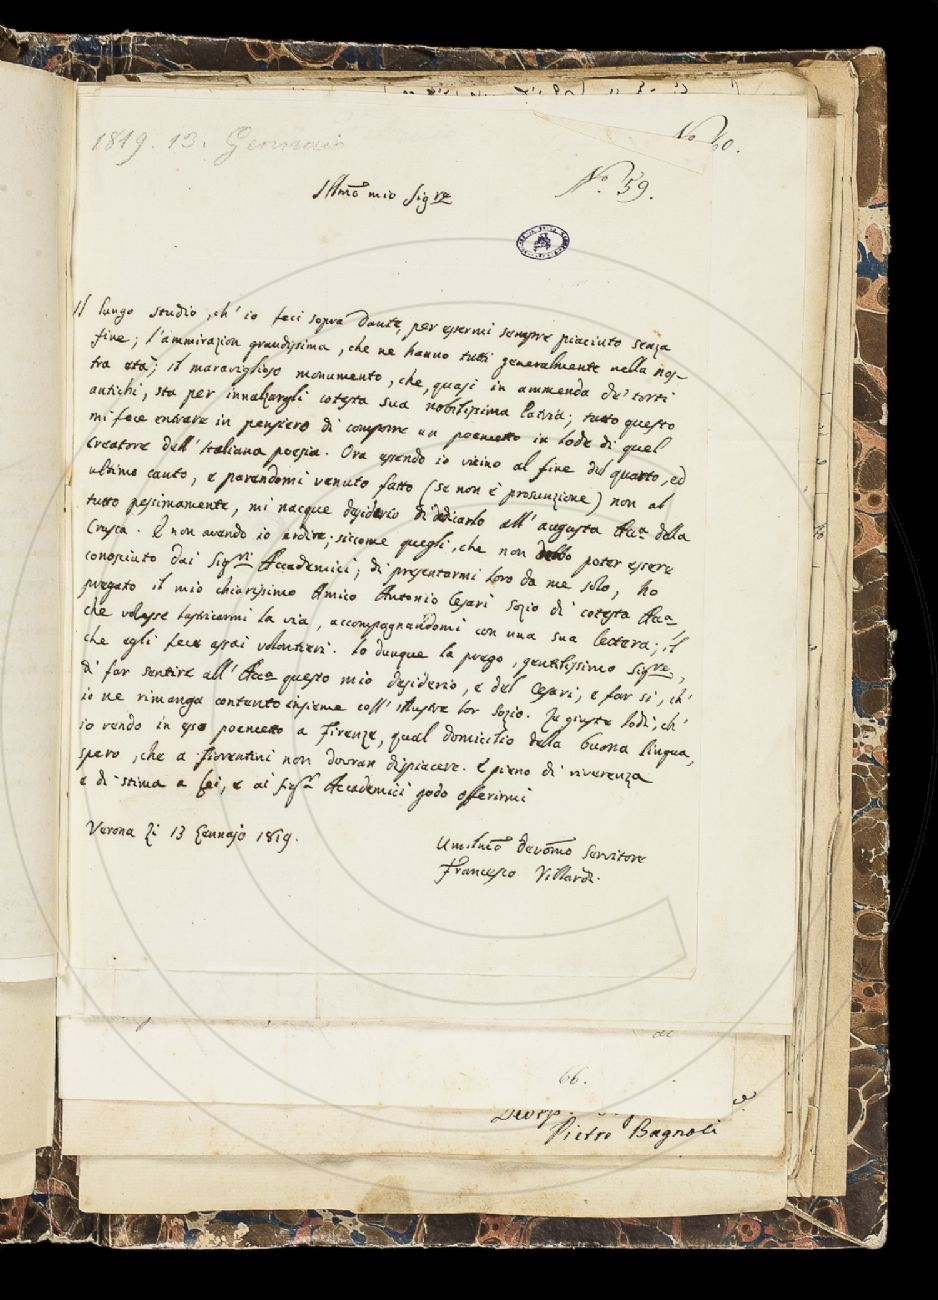 1819. 13. Gennaio
No. 60.
No. 59.
Illmo mio Sigre
Il lungo studio, ch' io feci sopra Dante, per essermi sempre piaciuto senza
fine; l'ammirazion grandissima, che ne hanno tutti generalmente nella nos-
tra età; il maraviglioso monumento, che, quasi in ammenda de' torti
antichi, sta per innalzargli cotesta sua nobilissima Patria; tutto questo
mi fece entrare in pensiero di comporre un poemetto in lode di quel
Creatore dell' Italiana poesia. Ora essendo io vicino al fine del quarto, ed
ultimo canto, e parendomi venuto fatto (se non è prosunzione) non al
tutto pessimamente, mi nacque desiderio di dedicarlo all' augusta Acca della
Crusca. E non avendo io ardire; siccome quegli, che non debbo poter essere
conosciuto dai Sigri Accademici; di presentarmi loro da me solo, ho
pregato il mio chiarissimo Amico Antonio Cesari Sozio di cotesta Acca
che volesse lastricarmi la via, accompagnandomi con una sua lettera; il
che egli fece assai volontieri. Io dunque la prego, gentilissimo Sigre,
di far sentire all' Acca questo mio desiderio, e del Cesari, e far sì, ch'
io ne rimanga contento insieme coll' illustre lor Sozio. Le giuste lodi, ch'
io rendo in esso poemetto a Firenze, qual domicilio della buona lingua,
spero, che a' fiorentini non dovran dispiacere. E pieno di riverenza
e di stima a Lei, e ai Sigri Accademici godo offerirmi
Verona li 13 Gennajo 1819.
Umilmo Devomo Servitore
Francesco Villardi.
66.
Pietro Bagnoli